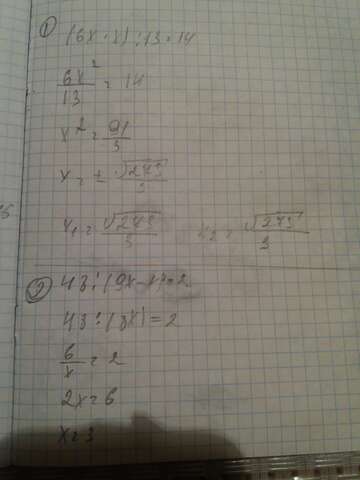 1 (6x·x):13=14
6x²/13 = 14
x² = 91/3
x = ± √273/3
x₁ = √273/3 x₂ = √273/3
2 43:(9x-x)=2
43:(8x)=2
6/x = 2
2x=6
x=3